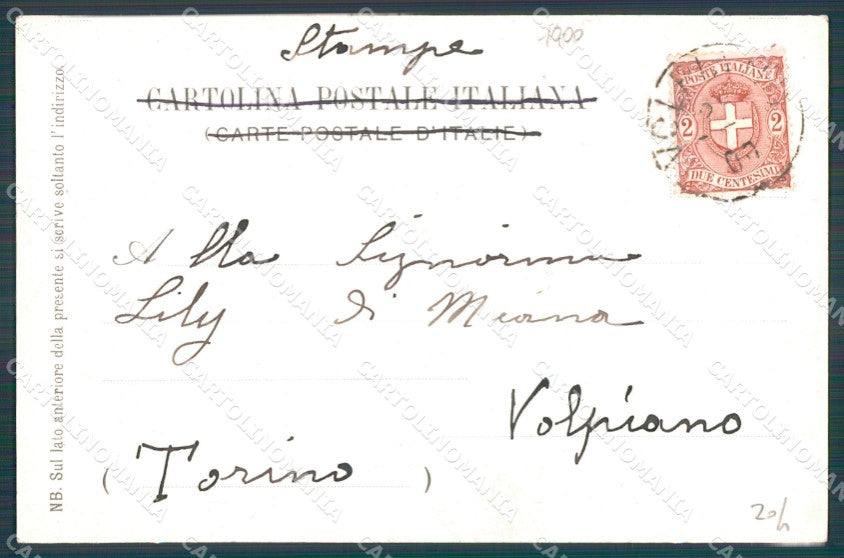 Stampe
1900
CARTOLINA POSTALE ITALIANA
(CARTE POSTALE D'ITALIE)
POSTE ITALIANE
2 2
DUE CENTESIMI
Alla Signorina
Lily di Miana
Volpiano
(Torino)
NB. Sul lato anteriore della presente si scrive soltanto l'indirizzo.
20/4
CARTOLINOMANIA